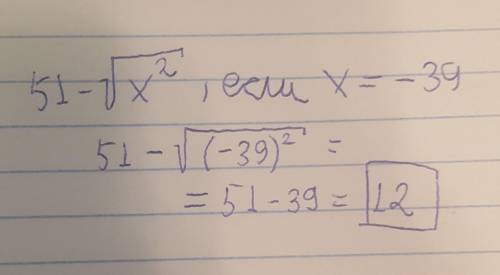 51 - √x², если x = -39
51 - √(-39)² =
= 51 - 39 = 12